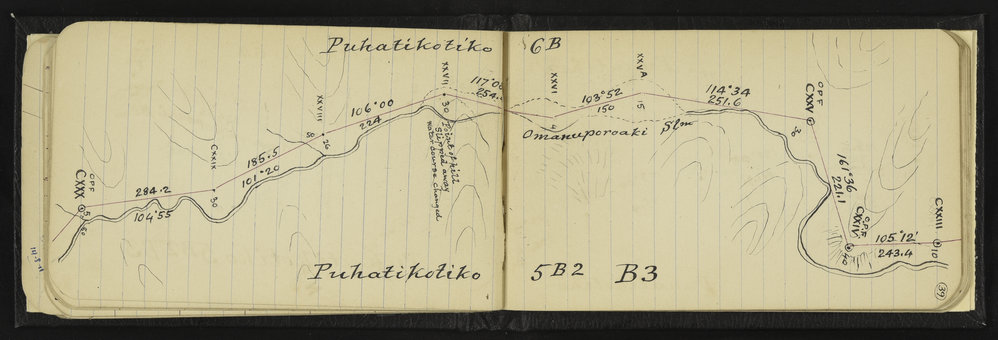 Puhatikotiko 6B
XXVII
XXVI
XXVA
117°0
254.
106°00
224
30
103°52
150
15
114°34
251.6
OPF
CXXV
30
XXVIII
50
26
Omanuporoaki Slm
Point of hill
Slipped away
watercourse changed
CXXIX
185.5
101°20
30
161°36
221.1
OPF
CXXX
284.2
104°55
OPF
CXXIV
40
105°12'
243.4
CXXIII
10
Puhatikotiko 5B2 B3
39